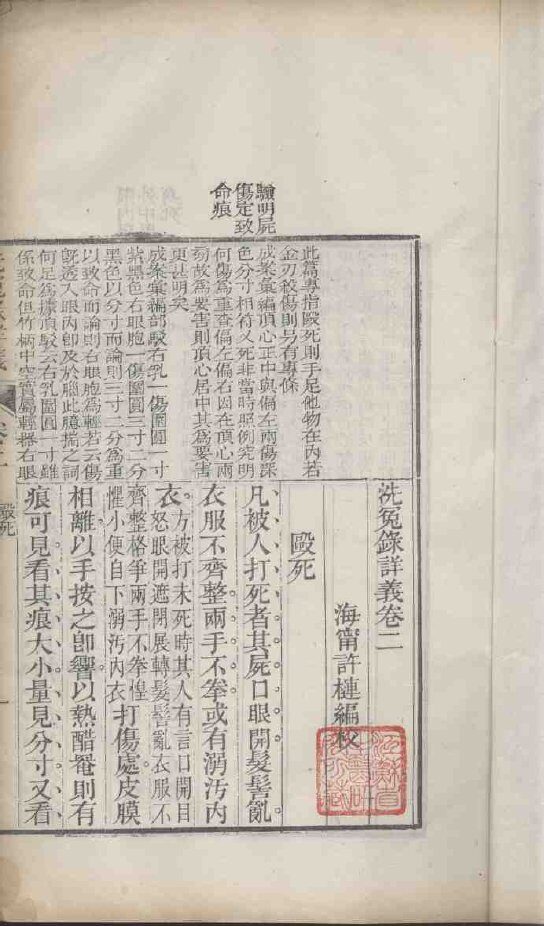 洗冤錄詳義卷二
海甯許槤編校
毆死
凡被人打死者其屍口眼開髮髻亂
衣服不齊整兩手不拳或有溺汚內
衣。方被打未死時其人有言口開目
怒眼開遮閉展轉髮髻亂衣服不
齊整格爭兩手不拳惶
懼小便自下溺汚內衣打傷處皮膜
相離以手按之卽響以熱醋罨則有
痕可見看其痕大小量見分寸又看
驗明屍
傷定致
命痕
此篇專指毆死則手足他物在內若
金刃殺傷則另有專條
成案彙編頂心正中與偏左兩傷深
色分寸相符又死非當時照例究明
何傷爲重查偏左偏右因在頂心兩
旁故爲要害則頂心居中其爲要害
更甚明矣
成案彙編部駁右乳一傷圍圓一寸
紫黑色右眼胞一傷圍圓三寸二分
黑色以分寸而論則三寸二分爲重
以致命而論則右眼胞爲輕若云傷
旣透入眼內卽及於腦此臆揣之詞
何足爲據頂駁云右乳圍圓一寸雖
係致命但竹柄中空實屬輕器右眼
卷二
毆死
一